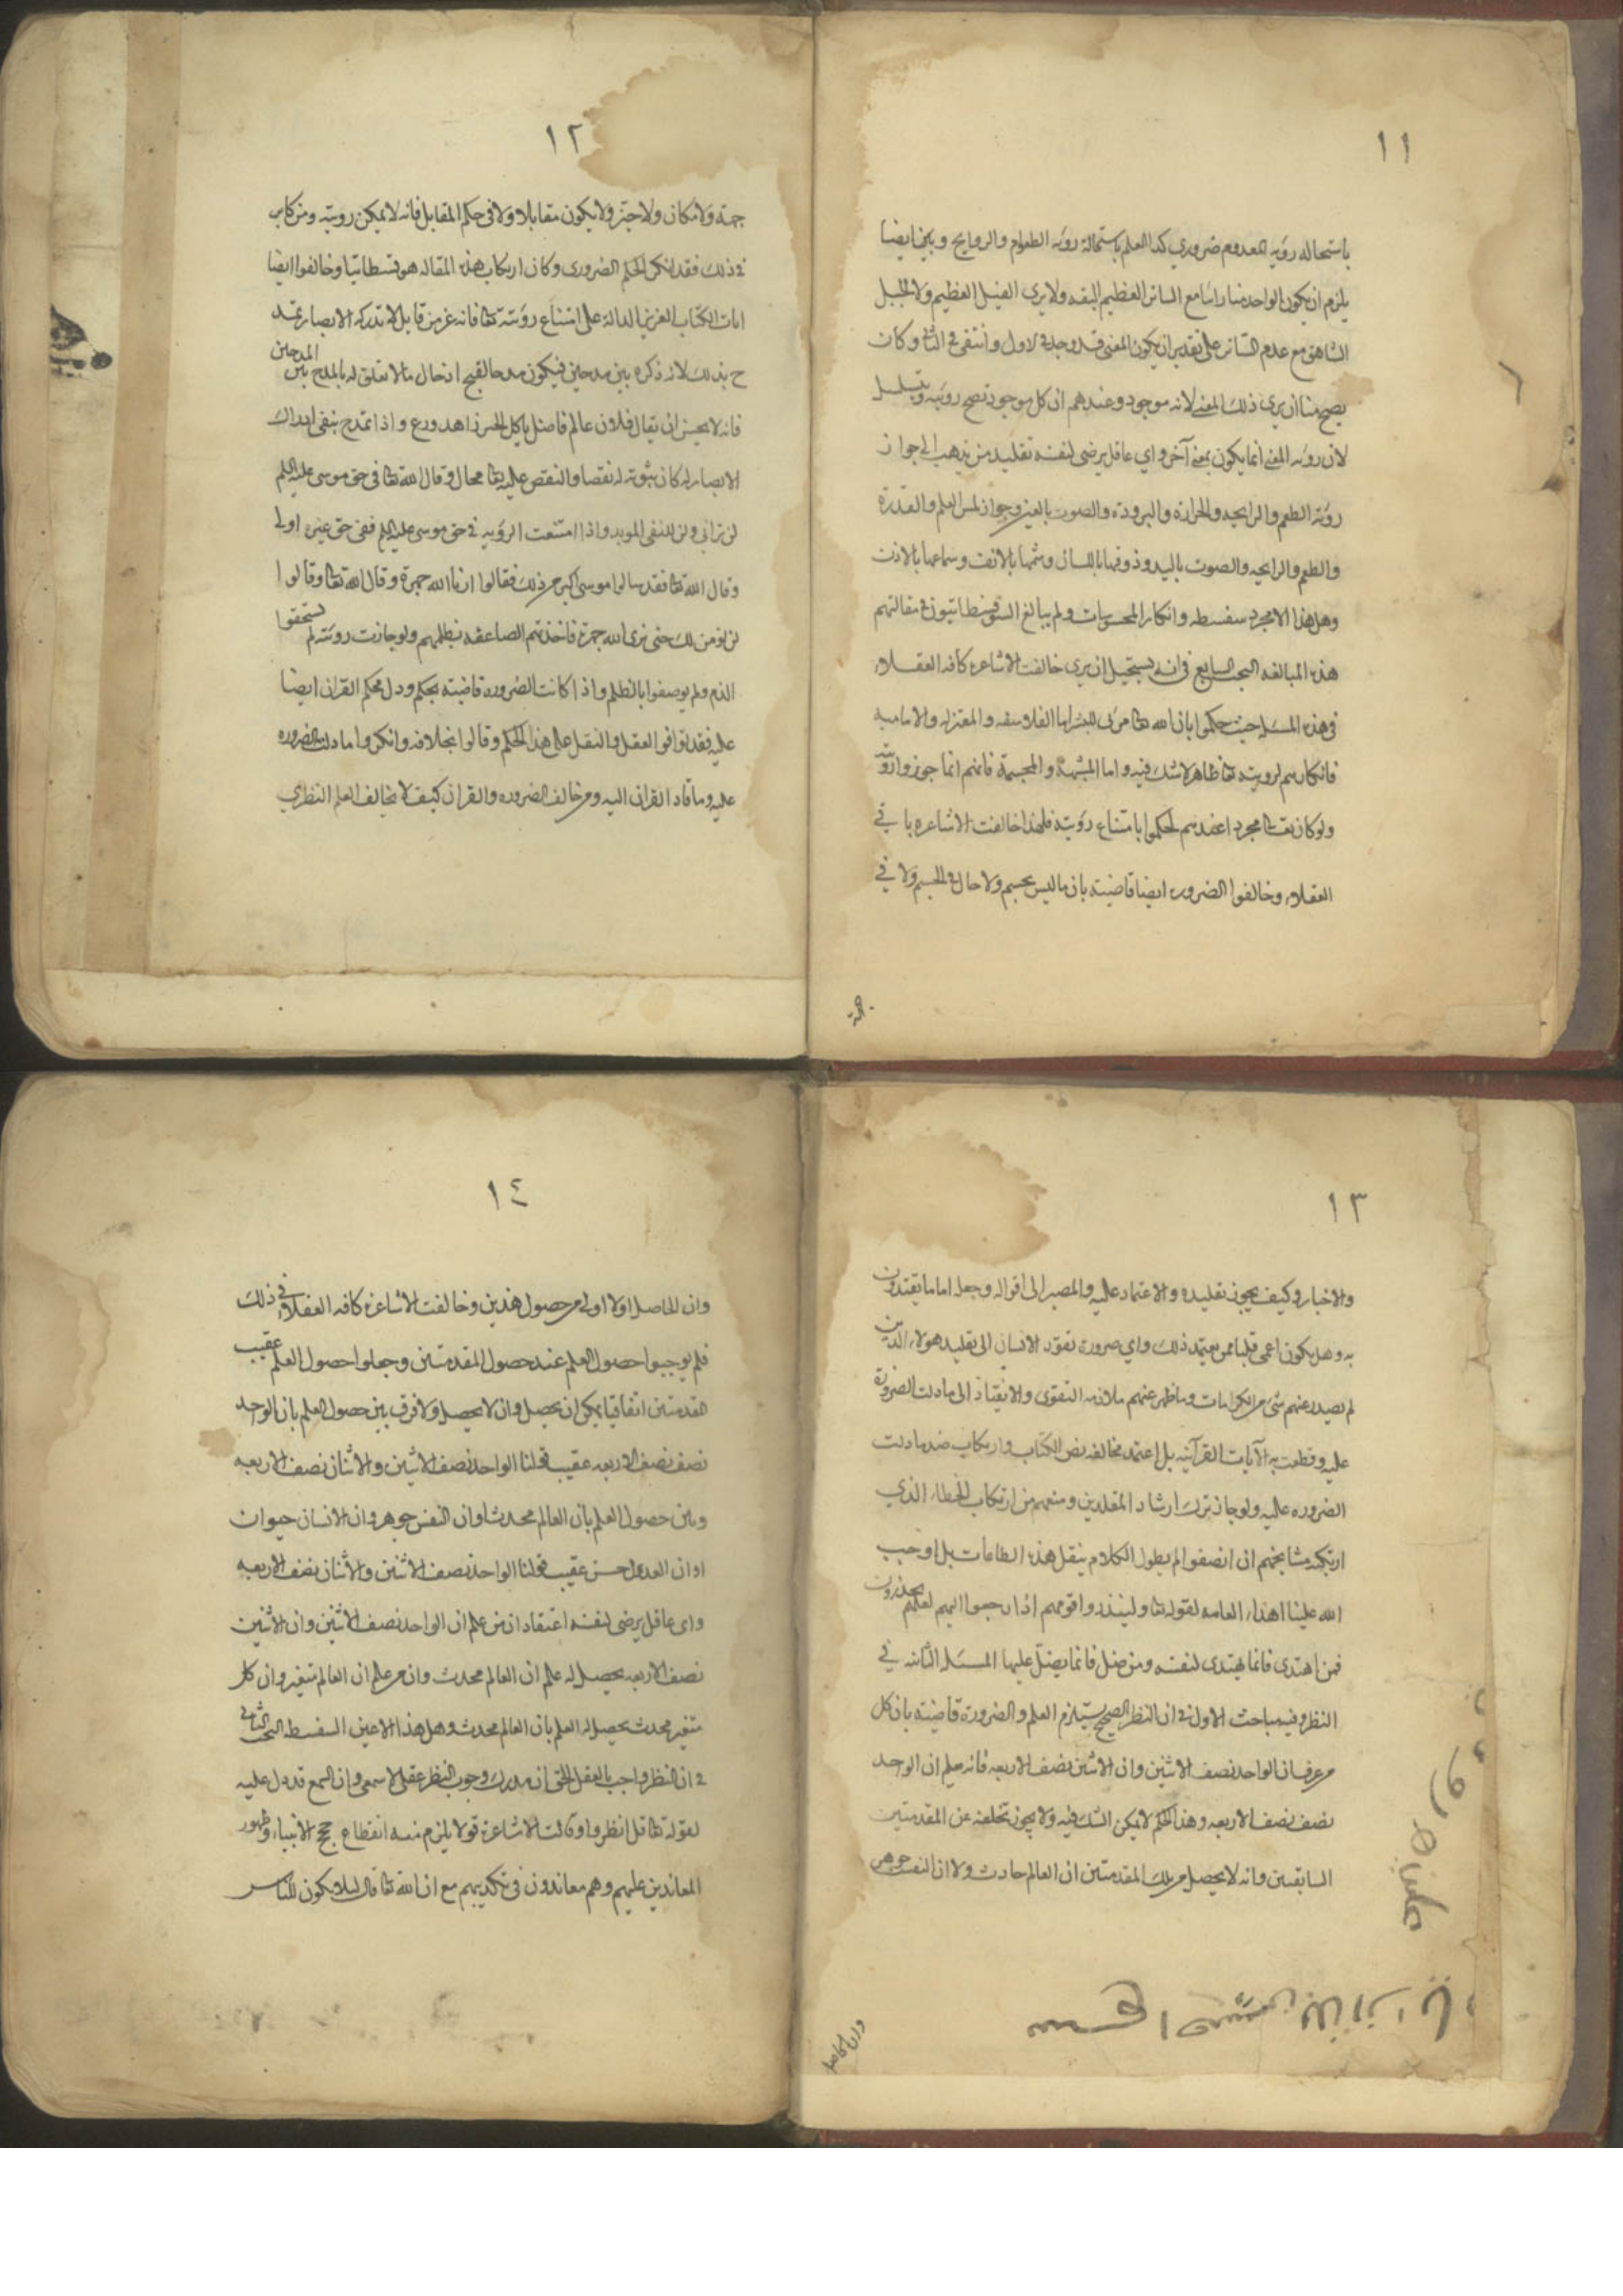 ١١
باستحاله رؤيه المعدوم ضروري كذا العلم باستحالة رؤيه الطعوم والروايح وبين ايضا
يلزم ان يكون الواحد منا رائيا مع الساتر العظيم البقه ولا يرى الفيل العظيم ولا الجبل
الشاهق مع عدم الساتر على تقدير ان يكون المعنى قد وجد في الاول وانتفى في الثاني وكان
يصح منا ان يرى ذلك المعنى لانه موجود وعندهم ان كل موجود تصح رؤيته ويتسلسل
لان رؤيه المعنى انما يكون بمعنى آخر واي عاقل يرضى لنفسه تقليد من يذهب الى جواز
رؤية الطعم والرايحه والحرارة والبرودة والصوت بالعين وجواز لمس العلم والقدرة
والطعم والرايحه والصوت باليد وذوقها باللسان وشمها بالانف وسماعها بالاذن
وهل هذا الا مجرد سفسطه وانكار المحسوسات ولم يبالغ السوفسطائيون في مقالتهم
هذه المبالغه البحث السابع في انه يستحيل ان يرى خالفت الاشاعره كافه العقلاء
في هذه المسئله حيث حكموا بان الله تعا مرئي للبشر اما الفلاسفه والمعتزله والاماميه
فانكارهم لرويته تعا ظاهر لا شك فيه واما المشبهة والمجسمة فانهم انما جوزوا رؤيته
ولو كان تعا مجردا عندهم لحكموا بامتناع رؤيته فلهذا خالفت الاشاعره باقي
العقلاء وخالفوا الضروره ايضا قاضيته بان ما ليس بجسم ولا حال في الجسم ولا في
جهة
١٢
جهة ولا مكان ولا حيز ولا يكون مقابلا ولا في حكم المقابل فانه لا يمكن رويته ومن كابر
في ذلك فقد انكر الحكم الضروري وكان ارتكاب هذه المقاله سوفسطائيا وخالفوا ايضا
ايات الكتاب العزيز الدالة على امتناع رؤيته تعا فانه عز من قايل لا تدركه الابصار تمد
ح بذلك لانه ذكره بين مدحين فيكون مدحا لقبح ادخال ما لا تعلق له بالمدح بين المدحين
فانه لا يحسن ان يقال فلان عالم فاضل ياكل الخبز زاهد ورع واذا تمدح بنفي ادراك
الابصار له كان ثبوته له نقصا والنقص عليه تعا محال وقال الله تعا في حق موسى عليه السلم
لن تراني ولن للنفي الموبد واذا امتنعت الرؤيه في حق موسى عليه السلم ففي حق غيره اولى
وقال الله تعا فقد سالوا موسى اكبر من ذلك فقالوا ارنا الله جهرة وقال الله تعا وقالوا
لن نومن لك حتى نرى الله جهرة فاخذتهم الصاعقه بظلمهم ولو جازت رؤيته لم يستحقوا
الذم ولم يوصفوا بالظلم واذا كانت الضروره قاضيته بحكم ودل محكم القران ايضا
عليه فقد توافق العقل والنقل على هذا الحكم وقالوا بخلافه وانكروا ما دلت الضروره
عليه وما قاد القران اليه ومن خالف الضروره والقران كيف لا يخالف العلم النظري
١٣
والاخبار وكيف يجوز تقليده والاعتماد عليه والمصير الى اقواله وجعله اماما يقتدون
به وهل يكون اعمى قلبا ممن يعتقد ذلك واي ضرورة تقود الانسان الى تقليد هولاء الذين
لم يصدر عنهم شئ من الكرامات وما ظهر عنهم ملازمه التقوى والانقياد الى ما دلت الضرورة
عليه وقطعت به الآيات القرآنيه بل اعتمد مخالفه نص الكتاب وارتكاب ضد ما دلت
الضروره عليه ولو جاز ترك ارشاد المقلدين ومنعهم من ارتكاب الخطاء الذي
ارتكبه مشايخهم ان انصفوا لم يطول الكلام بنقل هذه الطاعات بل اوجب
الله علينا اهداء العامه لقوله تعا ولينذروا قومهم اذا رجعوا اليهم لعلهم يحذرون
فمن اهتدى فانما يهتدى لنفسه ومن ضل فانما يضل عليها المسئله الثانيه في
النظر وفيه مباحث الاول في ان النظر الصحيح يستلزم العلم والضرورة قاضيته بان كل
من عرف ان الواحد نصف الاثنين وان الاثنين نصف الاربعه فانه يعلم ان الواحد
نصف نصف الاربعه وهذا الحكم لا يمكن الشك فيه ولا يجوز تخلفه عن المقدمتين
السابقتين وانه لا يحصل من تلك المقدمتين ان العالم حادث ولا ان النفس جوهر
وان الحاصل
١٤
وان الحاصل اولا اولى من حصول هذين وخالفت الاشاعره كافه العقلاء في ذلك
فلم يوجبوا حصول العلم عند حصول المقدمتين وجعلوا حصول العلم عقيب
المقدمتين اتفاقيا يمكن ان يحصل وان لا يحصل ولا فرق بين حصول العلم بان الواحد
نصف نصف الاربعه عقيب قولنا الواحد نصف الاثنين والاثنان نصف الاربعه
وبين حصول العلم بان العالم محدث او ان النفس جوهر وان الانسان حيوان
او ان العدل حسن عقيب قولنا الواحد نصف الاثنين والاثنان نصف الاربعه
واي عاقل يرضى لنفسه اعتقاد ان من علم ان الواحد نصف الاثنين وان الاثنين
نصف الاربعه يحصل له علم ان العالم محدث وان من علم ان العالم متغير وان كل
متغير محدث يحصل له العلم بان العالم محدث وهل هذا الا عين السفسطه البحث الثاني
في ان النظر واجب بالعقل الحق ان مدرك وجوب النظر عقلي لا سمعي وان السمع قد دل عليه
لقوله تعا قل انظروا وقالت الاشاعره قولا يلزم منه انقطاع حجج الانبياء وظهور
المعاندين عليهم وهم معاندون في تكذيبهم مع ان الله تعا قال لئلا يكون للناس